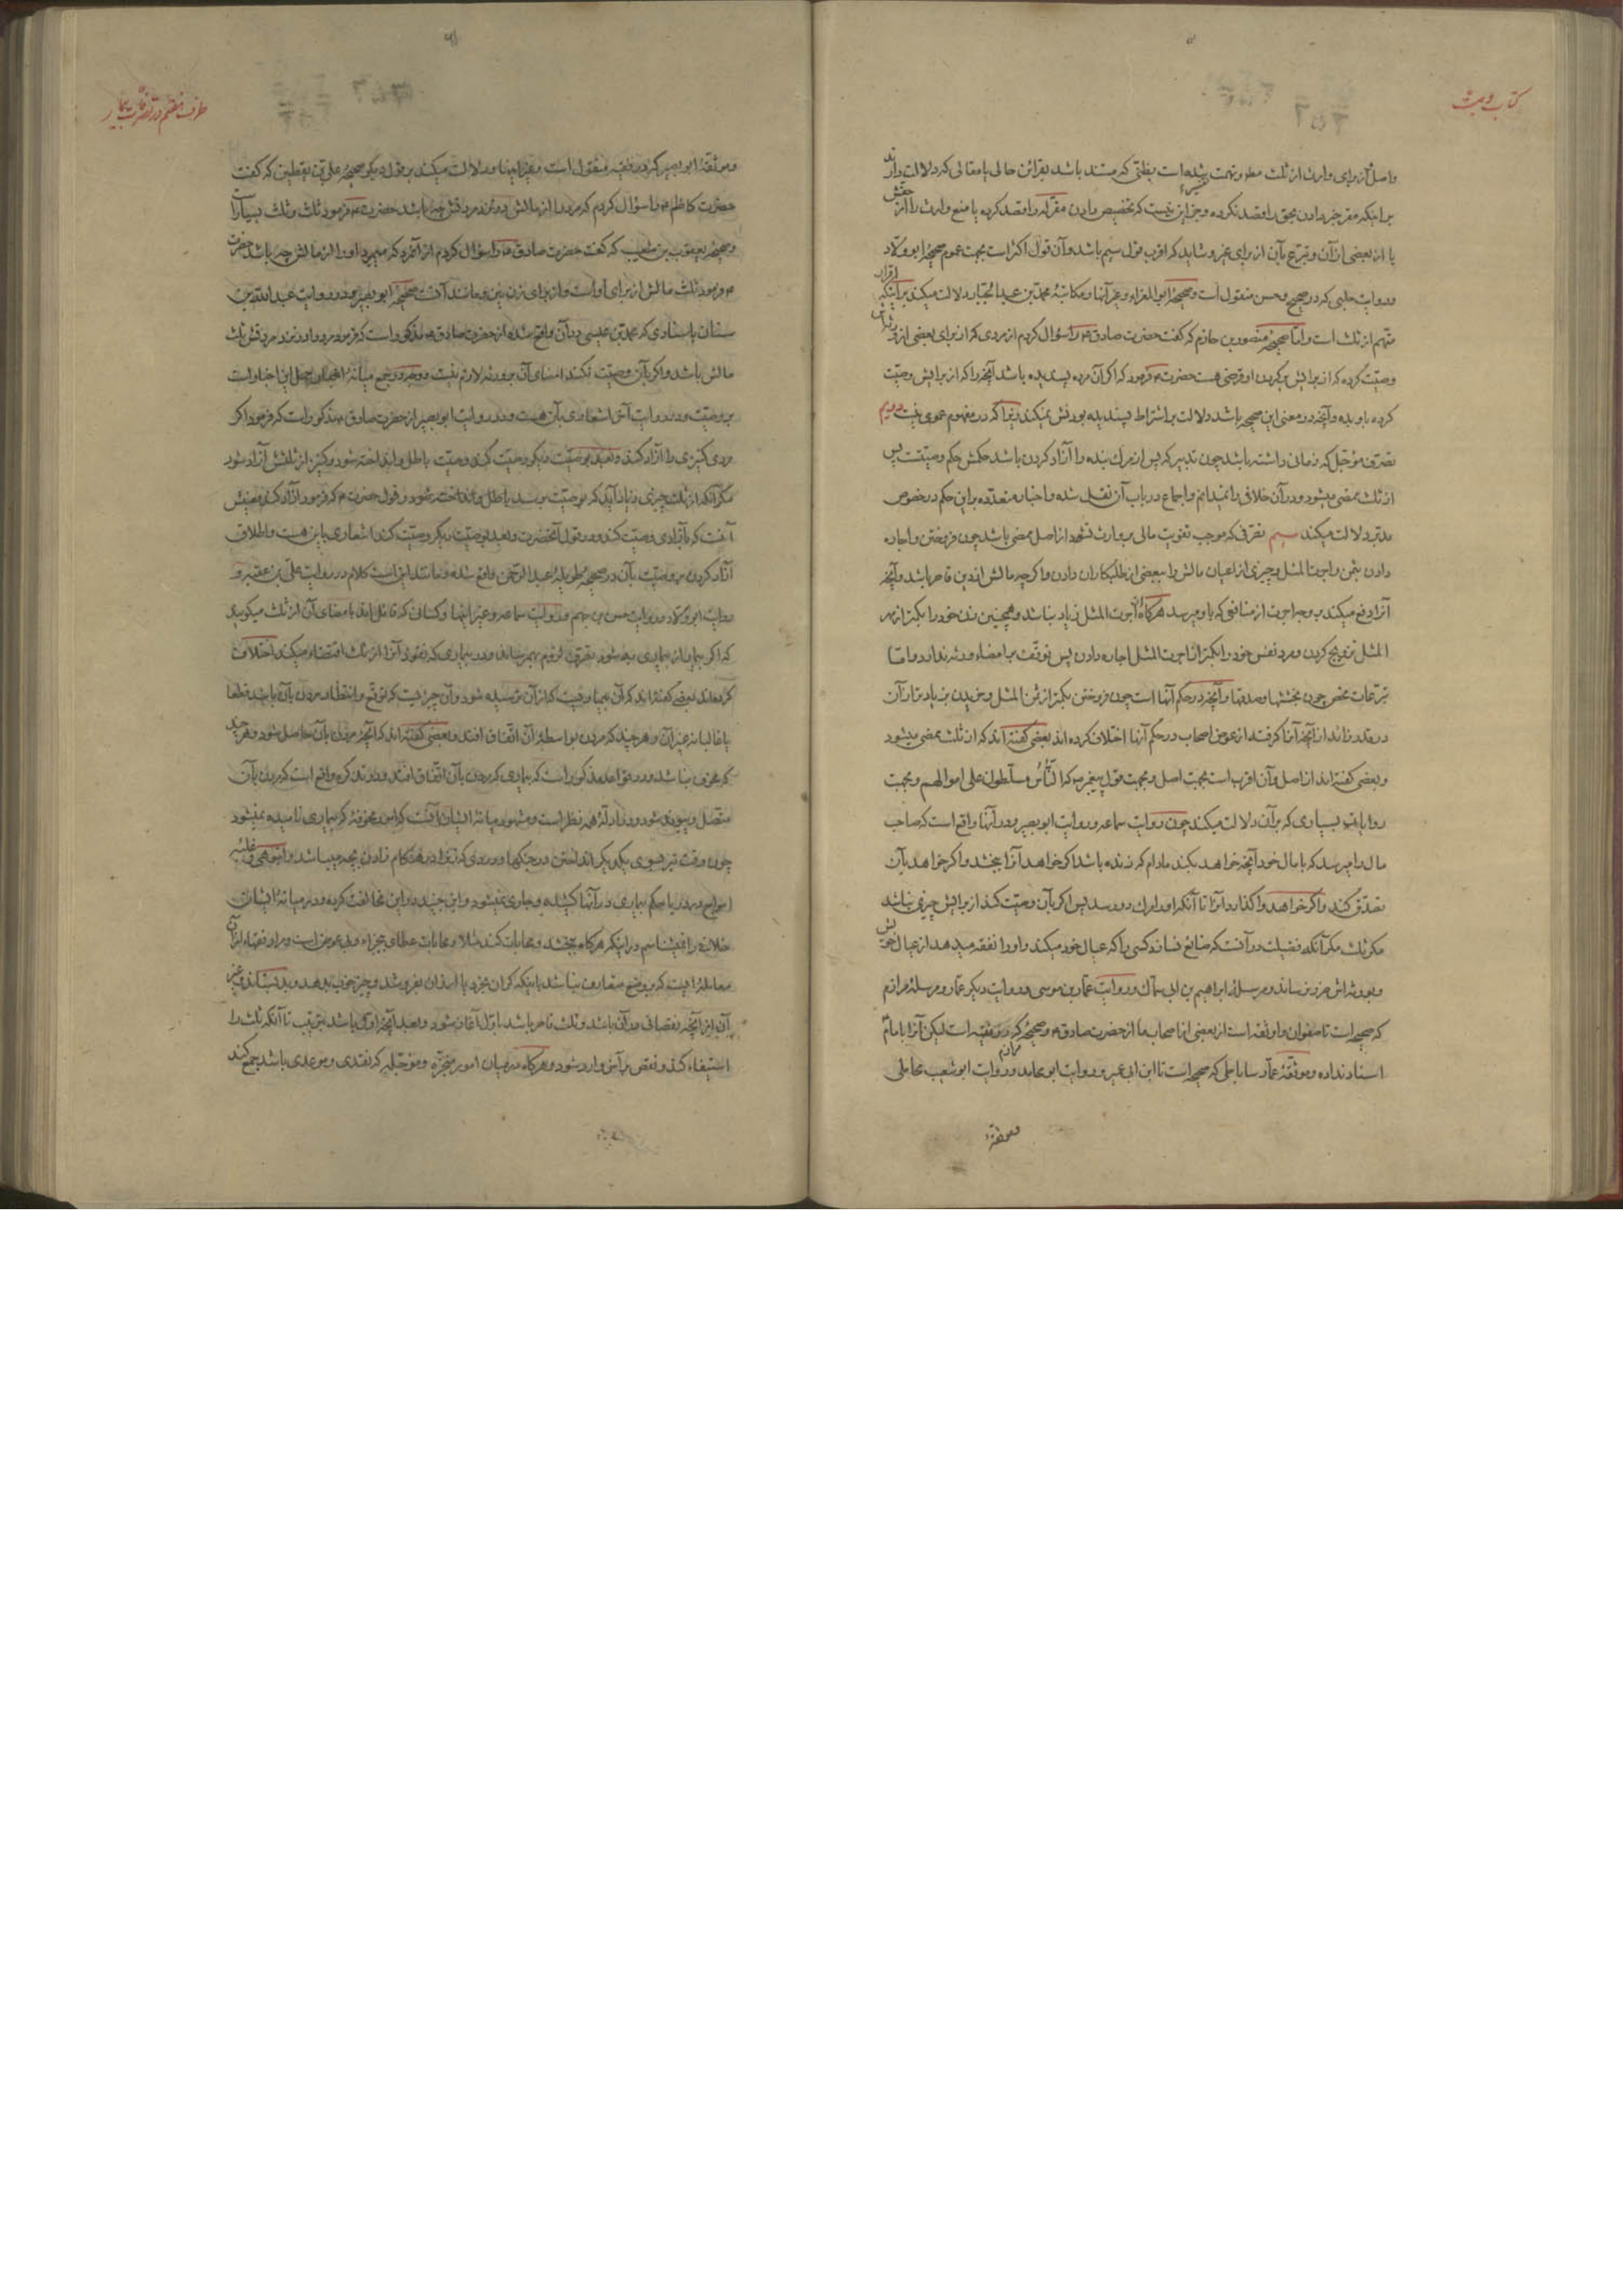 کتاب وصیت
واصل آن برای وارث از ثلث مطلوبست بظنی که مستند باشد بقرائن حالی یا مقالی که دلالت دارند
بر اینکه مقر خبر دادن بحق را قصد نکرده و جز این نیست که تخصیص دادن مقرله را قصد کرده یا منع وارث را از حقش
یا از بعضی از آن و تبرع بآن از برای غیر و شاید که اقرب قول سیم باشد و آن قول اکثر است بجهت عموم صحیحه ابو ولاد
و روایت حلبی که در صحیح و حسن منقول است و صحیحه ابو المغراء و غیر آنها و مکاتبه محمد بن عبد الجبار دلالت میکند بر اینکه اقرار
متهم از ثلث است و اما صحیحه منصور بن حازم که گفت حضرت صادق ع را سؤال کردم از مردی که از برای بعضی از ورثه اش
وصیت کرده که از برایش بر گردن او قرضی هست حضرت ع فرمود که اگر آن مرده پسندیده باشد آنچه را که از برایش وصیت
کرده باو بده و آنچه در معنی این صحیحه باشد دلالت بر اشتراط پسندیده بودنش نمیکند زیرا که در مفهوم عمومی نیست دویم
تصرف مؤجل که زمانی داشته باشد چون تدبیر که پس از مرگ بنده را آزاد کردن باشد حکمش حکم وصیتست پس
از ثلث ممضی میشود و در آن خلافی را نمیدانم و اجماع در باب آن نقل شده و اخبار متعدده بر این حکم در خصوص
مدبر دلالت میکند سیم تصرفی که موجب تفویت مالی بر وارث نشود از اصل ممضی باشد چون فروختن و اجاره
دادن بثمن و اجرت المثل و چیزی از اعیان مالش را ببعضی از طلبکاران دادن و اگر چه مالش از دین قاصر باشد و آنچه
آنرا دفع میکند بر وجه اجرت از منافعی که باو میرسد هرگاه از اجرت المثل زیاد نباشد و همچنین زن خود را بکمتر از مهر
المثل تزویج کردن و مرد نفس خود را بکمتر از اجرت المثل اجاره دادن پس توقف بر امضاء ورثه ندارد و اما
تبرعات محض چون بخششها و صدقها و آنچه در حکم آنها است چون فروختن بکمتر از ثمن المثل و خریدن بزیادتر از آن
در قدر زائد از آنچه آنرا گرفته از عوض اصحاب در حکم آنها اختلاف کرده اند بعضی گفته اند که از ثلث ممضی میشود
و بعضی گفته اند از اصل و آن اقرب است بجهت اصل و بجهت قول پیغمبر ص که الناس مسلطون علی اموالهم و بجهت
روایات بسیاری که بر آن دلالت میکند چون روایت سماعه و روایت ابو بصیر و در آنها واقع است که صاحب
مال را میرسد که با مال خود آنچه خواهد بکند مادام که زنده باشد اگر خواهد آنرا ببخشد و اگر خواهد بآن
تصدق کند و اگر خواهد واگذارد آنرا تا آنکه او را مرگ در رسد پس اگر بآن وصیت کند از برایش چیزی نباشد
مگر ثلث مگر آنکه فضیلت در آنست که ضایع نسازد کسی را که عیال خود میکند و او را نفقه میدهد از عیال خویش
و بورثه اش ضرر نرساند و مرسله ابراهیم بن ابی سماک و روایت عمار بن موسی و روایت دیگر عمار و مرسله مرازم
که صحیح است تا صفوان و او ثقه است از بعضی از اصحاب ما از حضرت صادق ع و صحیحه مرازم که در فقیه است لیکن آنرا بامام
اسناد نداده و موثقه عمار ساباطی که صحیح است تا ابن ابی عمیر و روایت ابو محامد و روایت ابو شعیب محاملی
وموثقه
طرف هفتم در تصرفات بیمار
وموثقه ابو بصیر که در فقیه منقول است و غیر اینها و دلالت میکند بر قول دیگر صحیحه علی بن یقطین که گفت
حضرت کاظم ع را سؤال کردم که مرد را از مالش در نزد مردنش چه باشد حضرت ع فرمود ثلث و ثلث بسیار است
و صحیحه یعقوب بن شعیب که گفت حضرت صادق ع را سؤال کردم از آنمرد که میمیرد او را از مالش چه باشد حضرت
ع فرمود ثلث مالش از برای او است و از برای زن نیز و مانند آنست صحیحه ابو بصیر و در روایت عبد الله بن
سنان باسنادی که محمد بن عیسی در آن واقع شده از حضرت صادق ع مذکور است که فرمود مرد را در نزد مردنش ثلث
مالش باشد و اگر بآن وصیت نکند امضای آن بر ورثه لازم نیست و وجه در جمع میانه اخبار حمل این اخبار است
بر وصیت و در روایت آخر اشعاری بآن هست و در روایت ابو بصیر از حضرت صادق ع مذکور است که فرمود اگر
مردی کنیزی را آزاد کند و بعد بوصیت دیگر وصیت کند وصیت باطل و انداخته شود و کنیز از ثلثش آزاد شود
مگر آنکه از ثلث چیزی زیاد آید که بوصیت برسد باطل و انداخته نشود و قول حضرت ع که فرمود آزاد کند معنیش
آنست که بآزادی وصیت کند و در قول آنحضرت و بعد بوصیت دیگر وصیت کند اشعاری باین هست و اطلاق
آزاد کردن بر وصیت بآن در صحیحه طویله عبد الرحمن واقع شده و مانند این است کلام در روایت علی بن عقبه و
روایت ابو ولاد و روایت حسن بن جهم و روایت سماعه و غیر اینها و کسانی که قائل اند بامضای آن از ثلث میگویند
که اگر بیمار از بیماری به شود تصرف لزوم بهم رساند و در بیماری که نفوذ آنرا از ثلث اقتضاء میکند اختلاف
کرده اند بعضی گفته اند که آن بیماریست که از آن ترسیده شود و آن چیزیست که توقع و انتظار مردن بآن باشد قطعا
یا غالبا نه غیر آن و هر چند که مردن بواسطه آن اتفاق افتد و بعضی گفته اند که آنچه مردن بآن حاصل شود و هر چند
که مخوف نباشد و در قواعد مذکور است که بیماری که مردن بآن اتفاق افتد و در تذکره واقع است که مردن بآن
متصل و پیوند شود و در ادله همه نظر است و مشهور میانه ایشان آنست که امور مخوفه که بیماری نامیده نمیشود
چون وقت تیر بسوی یکدیگر انداختن در جنگها و دردی که زنرا در هنگام زادن بچه میباشد و انبوهی و غلبه
امواج در دریا حکم بیماری در آنها کشیده و جاری نمیشود و ابن جنید در این مخالفت کرده و در میانه ایشان
خلافی را نمیشناسم در اینکه هرگاه ببخشد و محابات کند مثلا و محابات عطای بی جزاء و بی عوض است و مراد فقهاء از آن
معامله ایست که بر وضع متعارف نباشد باینکه گران بخرد یا ارزان بفروشد و چیز خوب بدهد و بد بستاند و غیر
آن از آنچه نقصانی در آن باشد و ثلث قاصر باشد باول آغاز شود و بعد بآنچه اولی باشد بترتیب تا آنکه ثلث را
استیفاء کند و نقص بر آخر وارد شود و هرگاه در میان امور منجزه و مؤجله که نقدی و موعدی باشد جمع کند